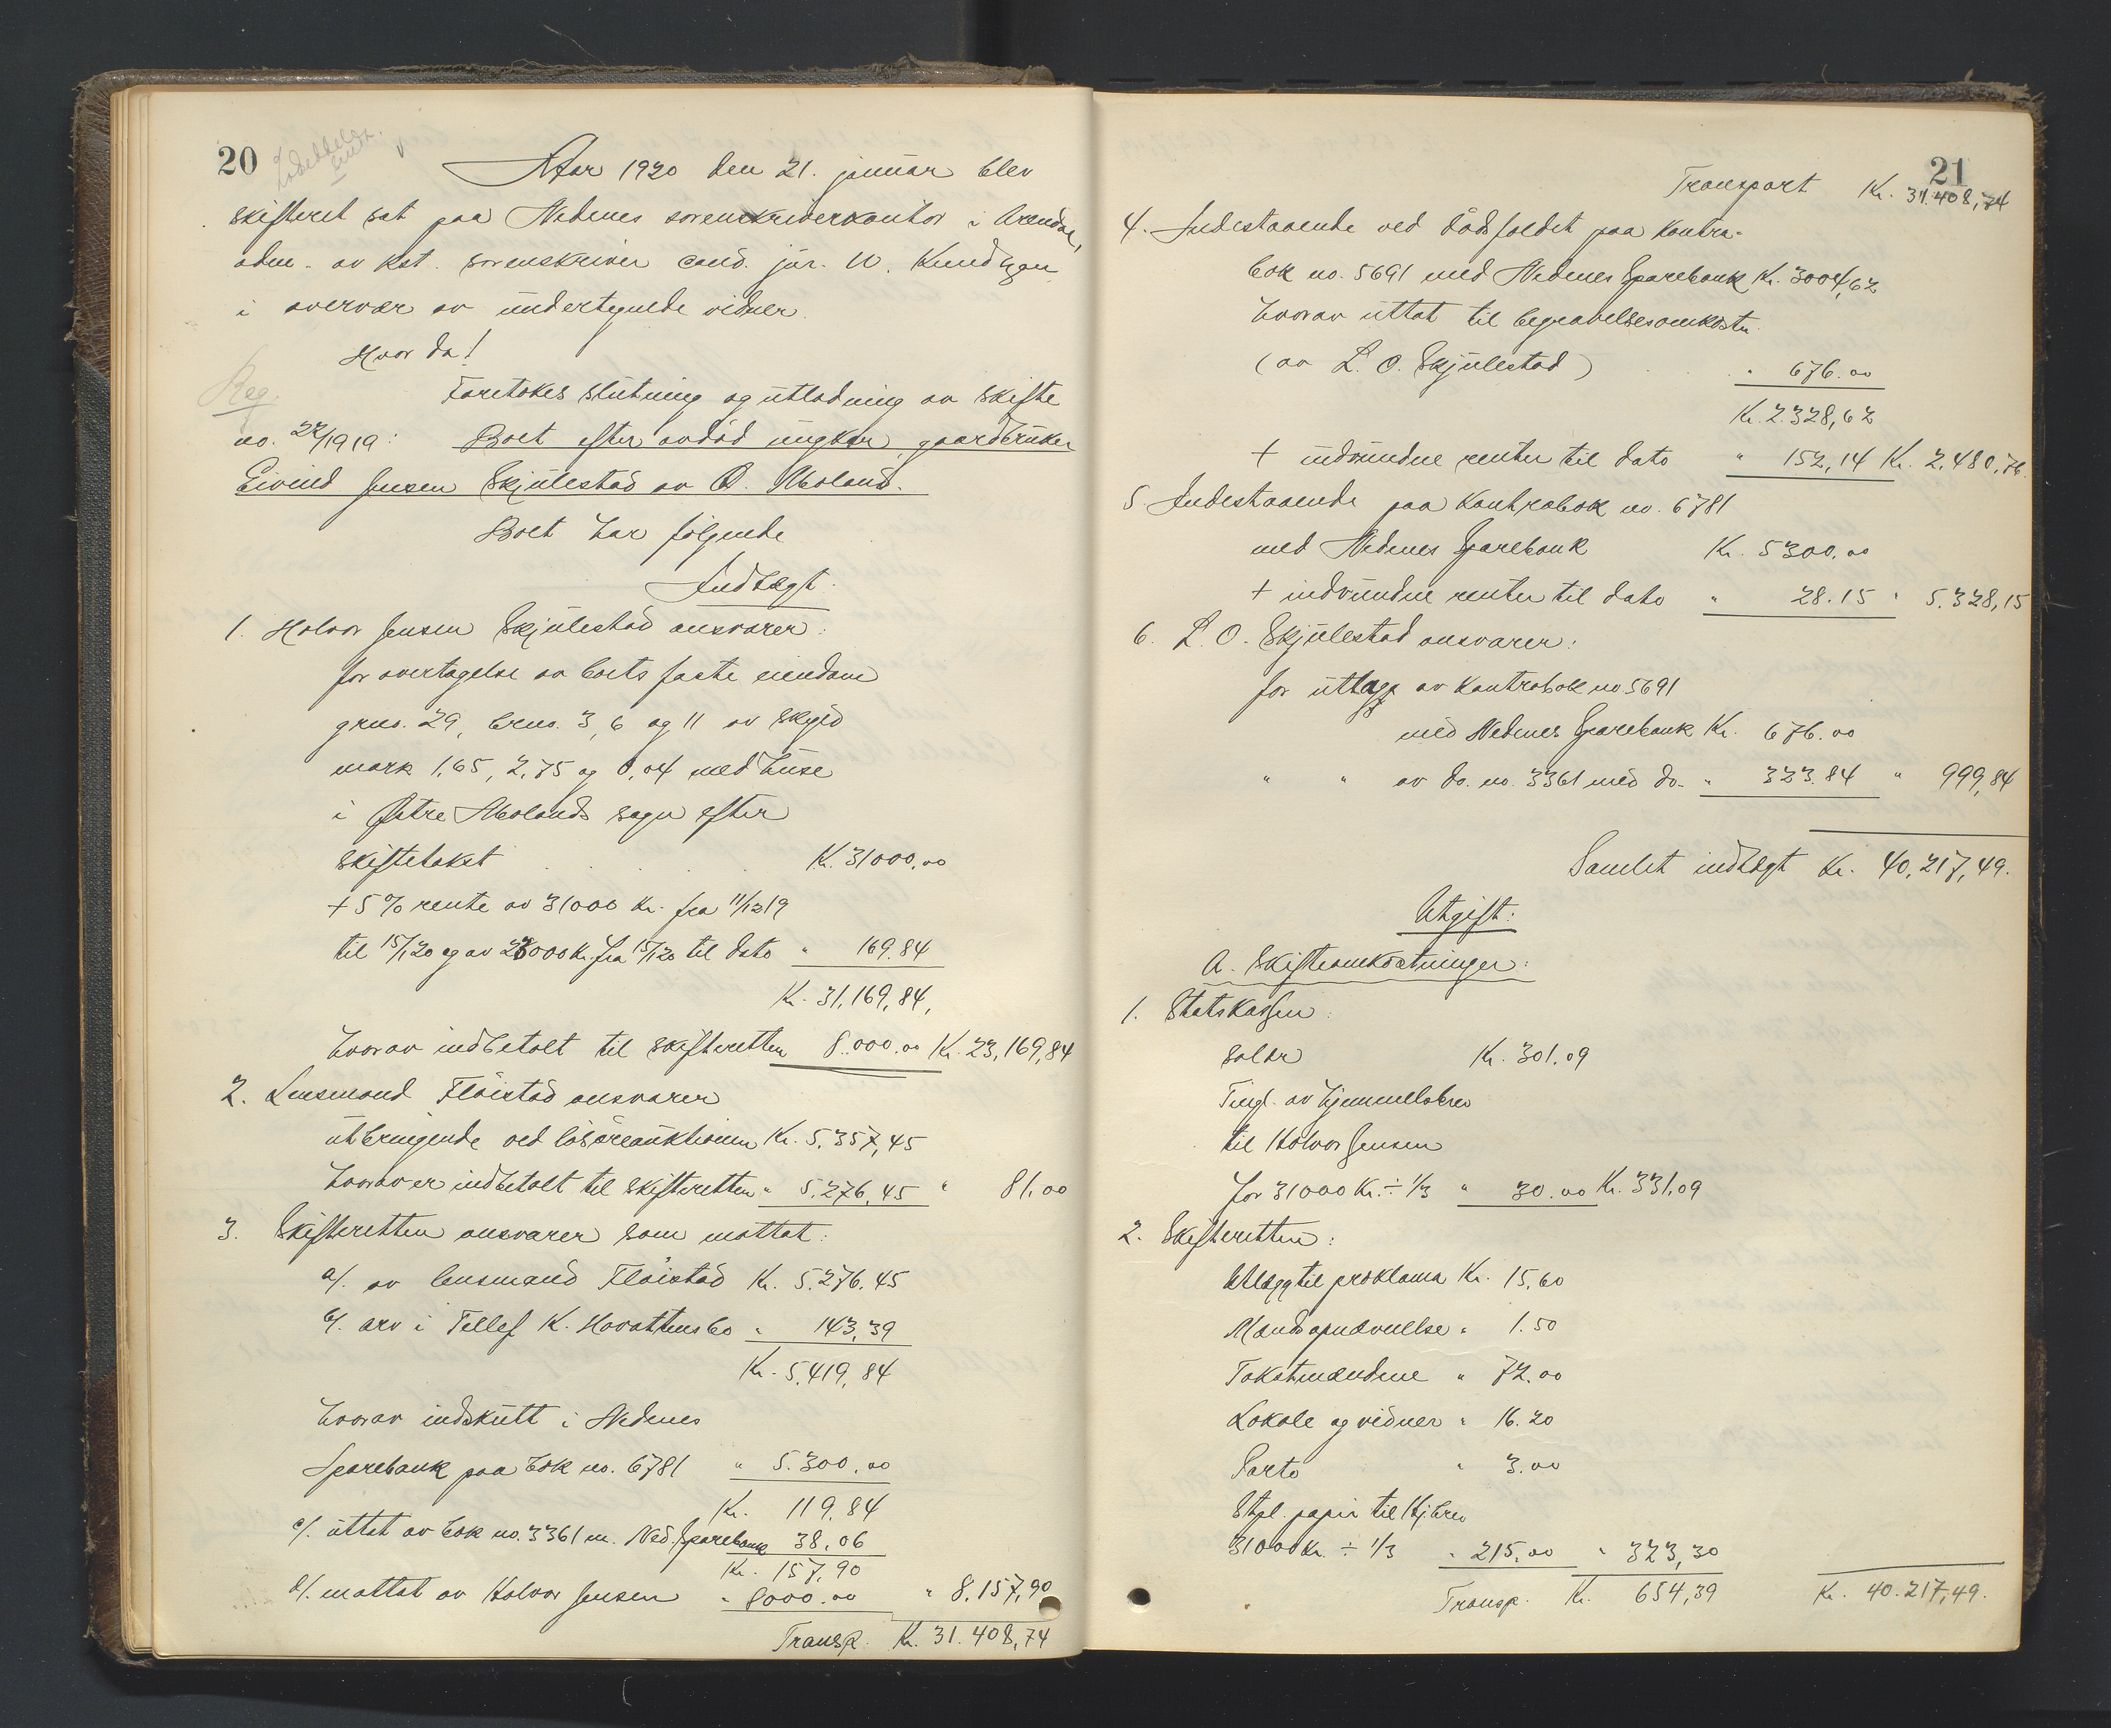 20
Aar 1920 den 21. januar blev
skifteret sat paa Nedenes sorenskriverkontor i Arendal,
adm. av kst. sorenskriver cand. jur. W. Knudtzon
i overvær av undertegnede vidner.
Hvor da!
Reg.
Foretokes slutning og utlodning av skifte
no. 22/1919: Boet efter avdød ungkar, gaardbruker
Eivind Jensen Skjulestad av Ø. Moland.
Boet har følgende
Indtægt:
1. Halvor Jensen Skjulestad ansvarer:
for overtagelse av boets faste eiendom
grno. 29, brno. 3, 6 og 11 av skyld
mark 1,65, 2,75 og 0,04 med huse
i Østre Molands sogn efter
skiftetakst . . . K. 31000,00
+ 5 % rente av 31000 Kr. fra 11/12 19
til 15/1 20 og av 23000 Kr. fra 15/1 20 til dato " 169.84
Kr. 31,169,84,
hvorav indbetalt til skifteretten 8.000.00 Kr. 23,169,84
2. Lensmand Fløistad ansvarer
utbringende ved løsøreauktionen Kr. 5.357,45
hvorav er indbetalt til skifteretten " 5.276,45 " 81,00
3. Skifteretten ansvarer som mottat:
a/. av lensmand Fløistad Kr. 5.276.45
b/. arv i Tellef K. Hovattens bo " 143,39
Kr. 5,419,84
hvorav indskutt i Nedenes
Sparebank paa bok no. 6781 " 5.300,00
Kr. 119.84
c/. uttat av bok no. 3361 m. Ned. Sparebank 38.06
Kr. 157,90
d/. mottat av Halvor Jensen " 8000.00 " 8.157,90
Transp. Kr. 31.408,74
21
Transport Kr. 31.408,74
4. Indestaaende ved dødsfaldet paa kontra-
bok no. 5691 med Nedenes Sparebank Kr. 3004,62
hvorav uttat til begravelsesomkostn.
(av L. O. Skjulestad) " 676.00
Kr. 2.328,62
+ indvundne renter til dato " 152,14 Kr. 2,480,76
5 Indestaaende paa kontrabok no. 6781
med Nedenes Sparebank Kr. 5300.00
+ indvundne renter til dato " 28.15 " 5.328,15
6. L. O. Skjulestad ansvarer:
for uttagg av kontrabok no 5691
med Nedenes Sparebank Kr. 676.00
" " av do. no. 3361 med do. " 323.84 " 999,84
Samlet indtægt Kr. 40,217,49.
Utgift:
A. Skifteomkostninger:
1. Statskassen:
Salær Kr. 301.09
Tingl. av hjemmelsbrev
til Halvor Jensen
for 31000 Kr. ÷ 1/3 " 30.00 Kr. 331,09
2. Skifteretten:
Utlæg til proklama Kr. 15,60
Mandsopnævnelse " 1.50
Takstmændene " 72.00
Lokale og vidner " 16.20
Porto " 3.00
Stpl. papir til Hj.brev
31000 Kr. ÷ 1/3 " 215,00 " 323,30
Transp. Kr. 654,39 Kr. 40.217,49.